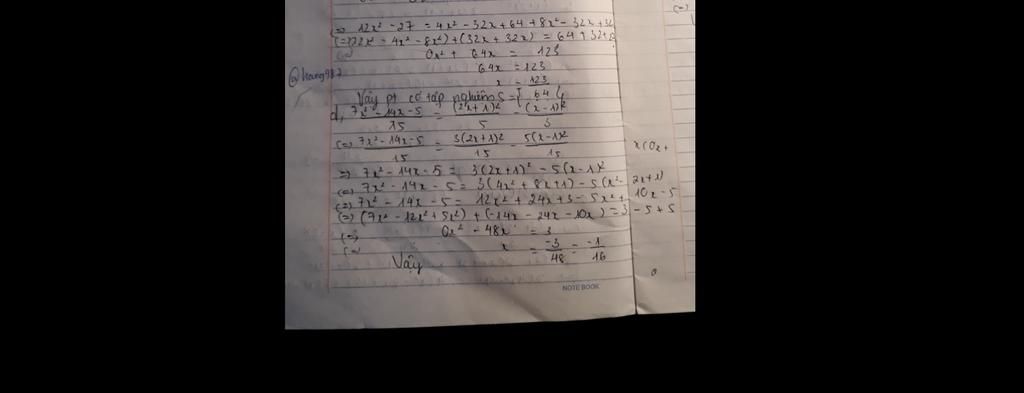 => 12x² - 27 = 4x² - 32x + 64 + 8x² - 32x + 32
4x² - 8x²) + (32x + 32x) = 64 + 32 +
0x² + 64x = 123
64x = 123
@hoang987
x = 123/64
Vậy pt có tập nghiệm S = { 64 }
d, (7x² - 14x - 5)/15 = (2x + 1)²/5 - (x - 1)²/3
(=) (7x² - 14x - 5)/15 = 3(2x + 1)²/15 - 5(x - 1)²/15
=> 7x² - 14x - 5 = 3(2x + 1)² - 5(x - 1)²
(=) 7x² - 14x - 5 = 3(4x² + 8x + 1) - 5(x² - 2x + 1)
(=) 7x² - 14x - 5 = 12x² + 24x + 3 - 5x² + 10x - 5
(=) (7x² - 12x² + 5x²) + (-14x - 24x - 10x) = 3 - 5 + 5
(=) 0x² - 48x = 3
(=) x = -3/48 = -1/16
Vậy
NOTE BOOK